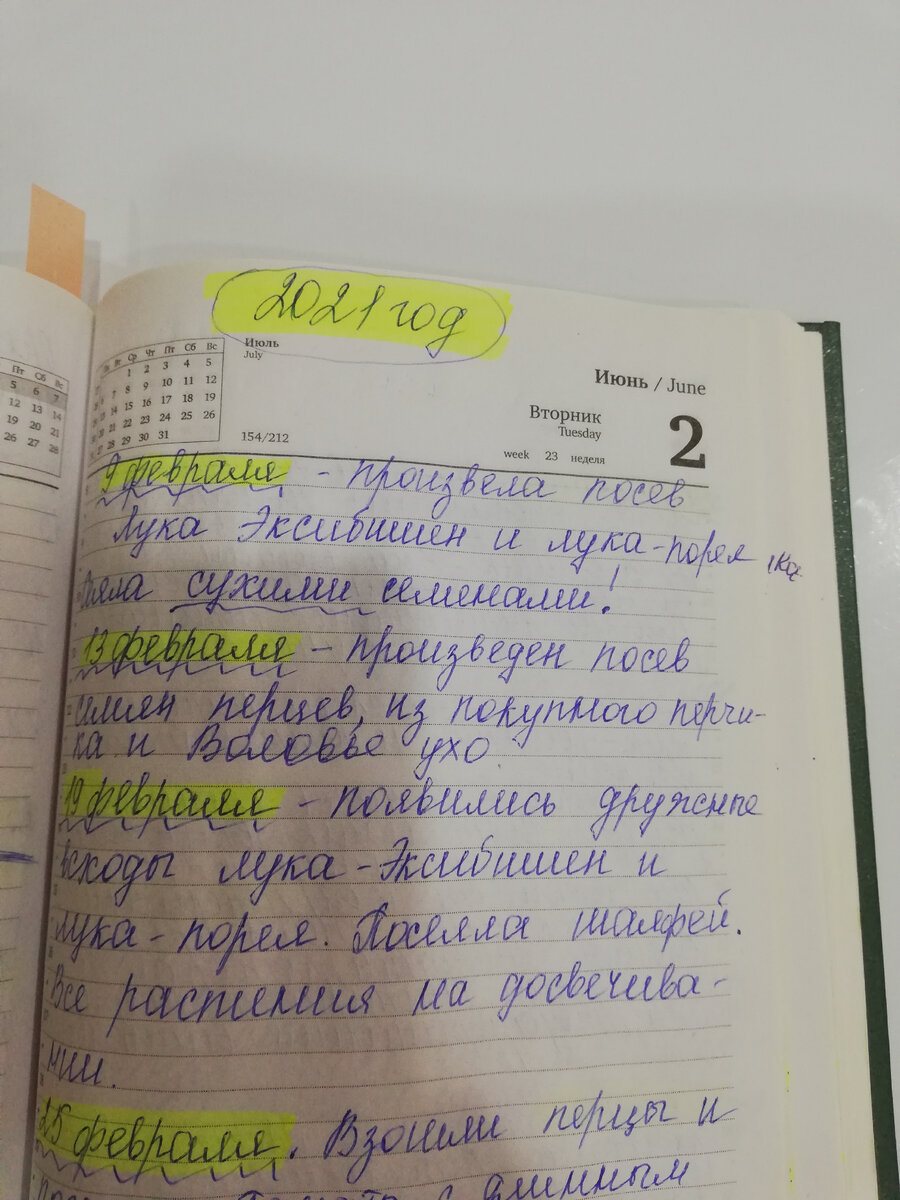 2021 год
Июль
July
Пн Вт Ср Чт Пт Сб Вс
1 2 3 4 5
6 7 8 9 10 11 12
13 14 15 16 17 18 19
20 21 22 23 24 25 26
27 28 29 30 31
154/212
Июнь / June
Вторник
Tuesday
week 23 неделя
2
Пт Сб Вс
5 6 7
12 13 14
19 20 21
26 27 28
9 февраля - произвела посев
Лука Эксибишен и лука-порея,
сеяла сухими семенами!
13 февраля - произведен посев
семян перцев, из покупного перчи-
ка и Воловье ухо
19 февраля - появились дружные
всходы лука-Эксибишен и
лука-порея. Посеяла шалфей.
Все растения на досвечива-
нии.
25 февраля. Взошли перцы и
с длинным